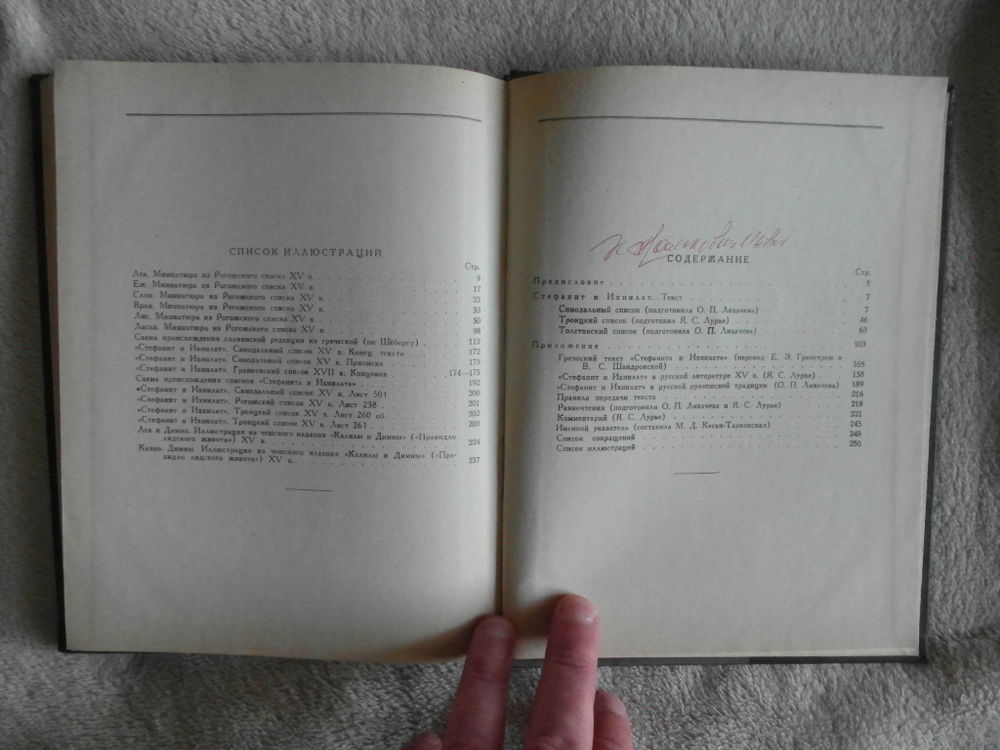 СПИСОК ИЛЛЮСТРАЦИЙ
Стр.
Лев. Миниатюра из Рогожского списка XV в. 9
Еж. Миниатюра из Рогожского списка XV в. 17
Слон. Миниатюра из Рогожского списка XV в. 23
Врач. Миниатюра из Рогожского списка XV в. 33
Лис. Миниатюра из Рогожского списка XV в. 50
Ласка. Миниатюра из Рогожского списка XV в. 98
Схема происхождения славянской редакции из греческой (по Шёбергу) 112
«Стефанит и Ихнилат». Синодальный список XV в. Конец текста 172
«Стефанит и Ихнилат». Синодальный список XV в. Приписка 173
«Стефанит и Ихнилат». Грановский список XVII в. Концовка 174—175
Схема происхождения списков «Стефанита и Ихнилата» 192
«Стефанит и Ихнилат». Синодальный список XV в. Лист 501 200
«Стефанит и Ихнилат». Рогожский список XV в. Лист 238 201
«Стефанит и Ихнилат». Троицкий список XV в. Лист 260 об. 202
«Стефанит и Ихнилат». Троицкий список XV в. Лист 261 203
Лев и Димна. Иллюстрация из чешского издания «Калилы и Димны» («Правидло
лидского живота») XV в. 224
Казнь Димны. Иллюстрация из чешского издания «Калилы и Димны» («Пра-
видло лидского живота») XV в. 237
СОДЕРЖАНИЕ
Стр.
Предисловие 5
Стефанит и Ихнилат. Текст 7
Синодальный список (подготовила О. П. Лихачева) 7
Троицкий список (подготовил Я. С. Лурье) 46
Толстовский список (подготовила О. П. Лихачева) 63
Приложение 103
Греческий текст «Стефанита и Ихнилата» (перевод Е. Э. Гранстрем и
В. С. Шандровской) 105
«Стефанит и Ихнилат» в русской литературе XV в. (Я. С. Лурье) 158
«Стефанит и Ихнилат» в русской рукописной традиции (О. П. Лихачева) 189
Правила передачи текста 216
Разночтения (подготовили О. П. Лихачева и Я. С. Лурье) 218
Комментарий (Я. С. Лурье) 221
Именной указатель (составила М. Д. Каган-Тарковская) 245
Список сокращений 249
Список иллюстраций 250